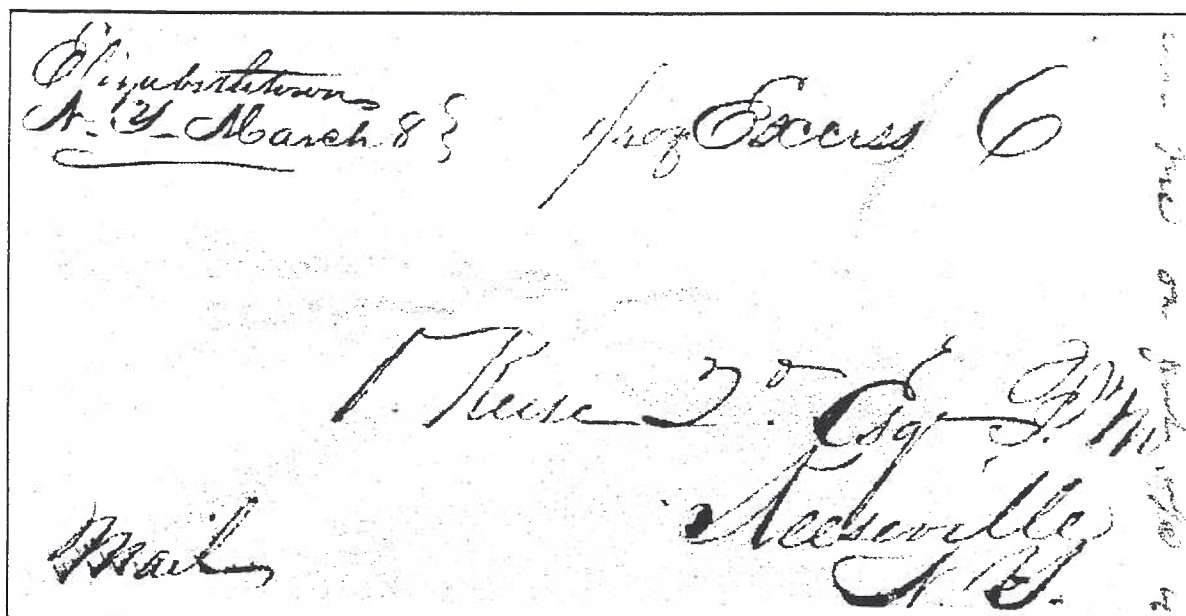 Elizabethtown
N. Y. March 8 } Excess 6
Keese 2d Esq P. M.
Keeseville
N. Y.
Mail
free on